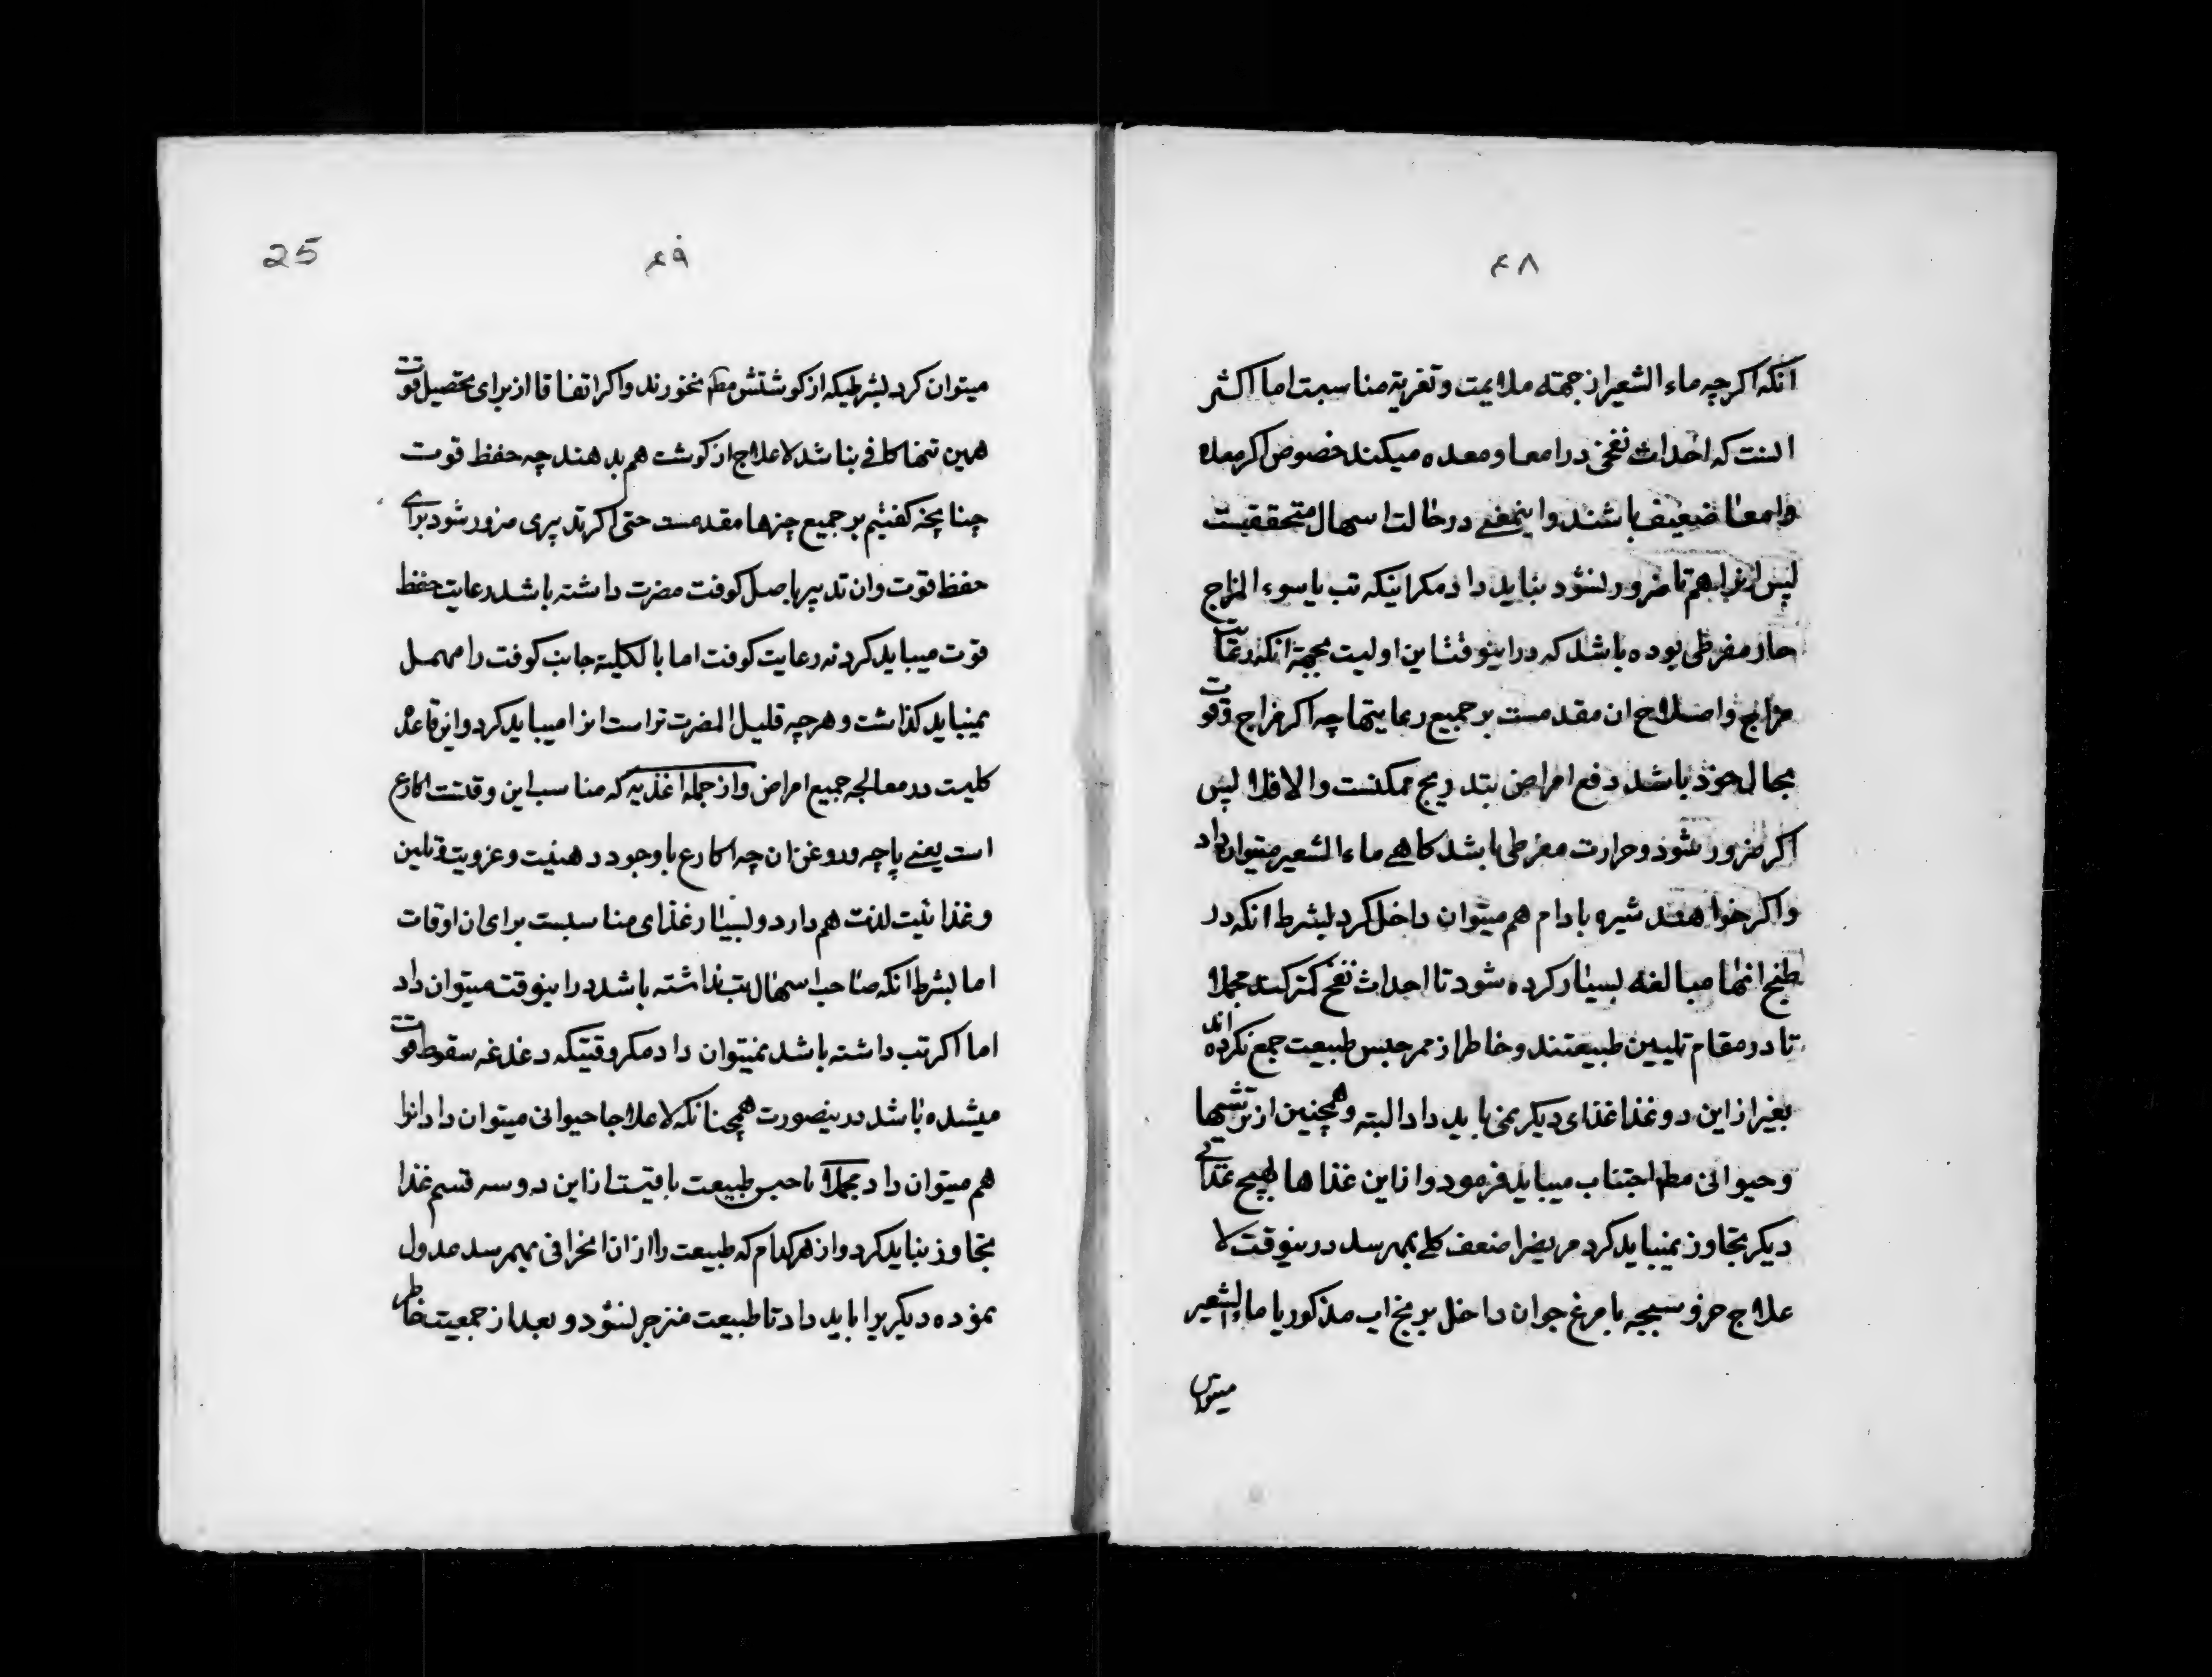 ۴۸
انکه اکرچه ماء الشعیر از جهته ملایمت و تغریه مناسبت اما اکثر
انست که احداث نفخی در امعا و معده میکند خصوص اکر معده
وامعا ضعیف باشند و اینمعنے در حالت اسهال متحققیست
پس انرا هم تا ضرور نشود نباید داد مکر اینکه تب یا سوء المزاج
حار مفرطی بوده باشد که در اینوقت این اولیت بجهة انکه رعایت
مزاج و اصلاح ان مقدمست بر جمیع رعایتها چه اکر مزاج و قوت
بحال خود باشد دفع امراض بتدریج ممکنست والا فلا پس
اکر ضرور شود و حرارت مفرطی باشد کاهے ماء الشعیر میتوان داد
واکر خواهند شیره بادام هم میتوان داخل کرد بشرط انکه در
طبخ انها مبالغه بسیار کرده شود تا احداث نفخ کمتر کند مجملا
تا در مقام تلیین طبیعتند و خاطر از ممر حبس طبیعت جمع نکرده اند
بغیر از این دو غذا غذای دیکر نمی باید داد البته و همچنین از ترشیها
و حیوانی مطلا اجتناب میباید فرمود و از این غذاها بهیچ غذائے
دیکر تجاوز نمیباید کرد مریضرا ضعف کلے بهمرسد در ینوقت لا
علاج حرفو سبجه با مرغ جوان داخل برنج اب مذکور یا ماء الشعیر
میتوان
۴۹
25
میتوان کرد بشرطیکه از کوشتش مطلا نخورند و اکر اتفاقا از برای تحصیل قوت
همین تنها کافے نباشد لا علاج از کوشت هم بدهند چه حفظ قوت
چنانچه کفتیم بر جمیع چیزها مقدمست حتی اکر تدبیری ضرور شود برای
حفظ قوت وان تدبیر باصل کوفت مضرت داشته باشد رعایت حفظ
قوت میباید کرد نه رعایت کوفت اما بالکلیة جانب کوفت را مهمل
نمیباید کذاشت و هرچه قلیل المضرت تر است انرا میباید کرد و این قاعدۀ
کلیست در معالجه جمیع امراض و از جمله اغذیه که مناسب این وقتست اکارع
است یعنے پاچه و روغن ان چه اکارع با وجود دهنیت و غرویت و تلین
و غذائیت لذت هم دارد و بسیار غذای مناسبست برای ان اوقات
اما بشرط انکه صاحب اسهال تب نداشته باشد در اینوقت میتوان داد
اما اکر تب داشته باشد نمیتوان داد مکر وقتیکه دغدغه سقوط قوت
میشده باشد در ینصورت همچنانکه لا علاجا حیوانی میتوان داد انرا
هم میتوان داد مجملا تا حبس طبیعت باقیست از این دو سه قسم غذا
تجاوز نباید کرد و از هر کدام که طبیعت را از ان انحرافی بهمرسد عدول
نموده دیکر یرا باید داد تا طبیعت منزجر نشود و بعد از جمعیت خاطر